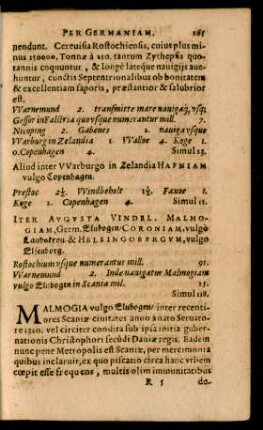 PER GERMANIAM. 265
neodunt. Cerevisia Rostochiensis, cuius plus mi
nus 250000. Tonnæ à 110. tantum Zythepsis quo-
tannis coquuntur, & longè lateque nauigijs auc-
huntur, cunctis Septentrionalibus ob bonitatem
& excellentiam saporis, præstantior & salubrior
est.
VVarnemund 2. transmitte mare nauigaq́; vsq;
Gessor in Falstria quo vsque numerantur mill. 7.
Nicoping 2. Gabenos 1. nauiga vsque
VVarburg in Zelandia 1 VValloe 4 Koge 1.
Copenhagen 4 Simul 23.
Aliud inter VVarburgo in Zelandia HAFNIAM
vulgo Copenhagen.
Prestoc 2½. Windbeholt 1½. Faxoe 1.
Koge 1 Copenhagen 4. Simul 11.
ITER AVGVSTA VINDEL. MALMO-
GIAM, Germ. Elnbogen/ CORONIAM, vulgo
& HELSINGOBVRGVM, vulgo
Elsenburg.
Rostochium vsque numerantur mill. 91.
VVarnemund 2. Inde nauigatim Malmogiam
vulgo Elnbogen in Scania mil. 25.
Simul 118.
MALMOGIA vulgo Elnbogen/ inter recenti-
ores Scaniæ ciuitates anno à nato Seruato-
re 1310. vel circiter condita sub ipsa initia guber-
nationis Christophori secūdi Daniæ regis. Eadem
nunc pene Metropolis est Scaniæ, per mercimonia
quibus inclaruit, ex quo piscatio circa hanc vrbem
cœpit esse frequens, multis olim immunitatibus
R 5 do-